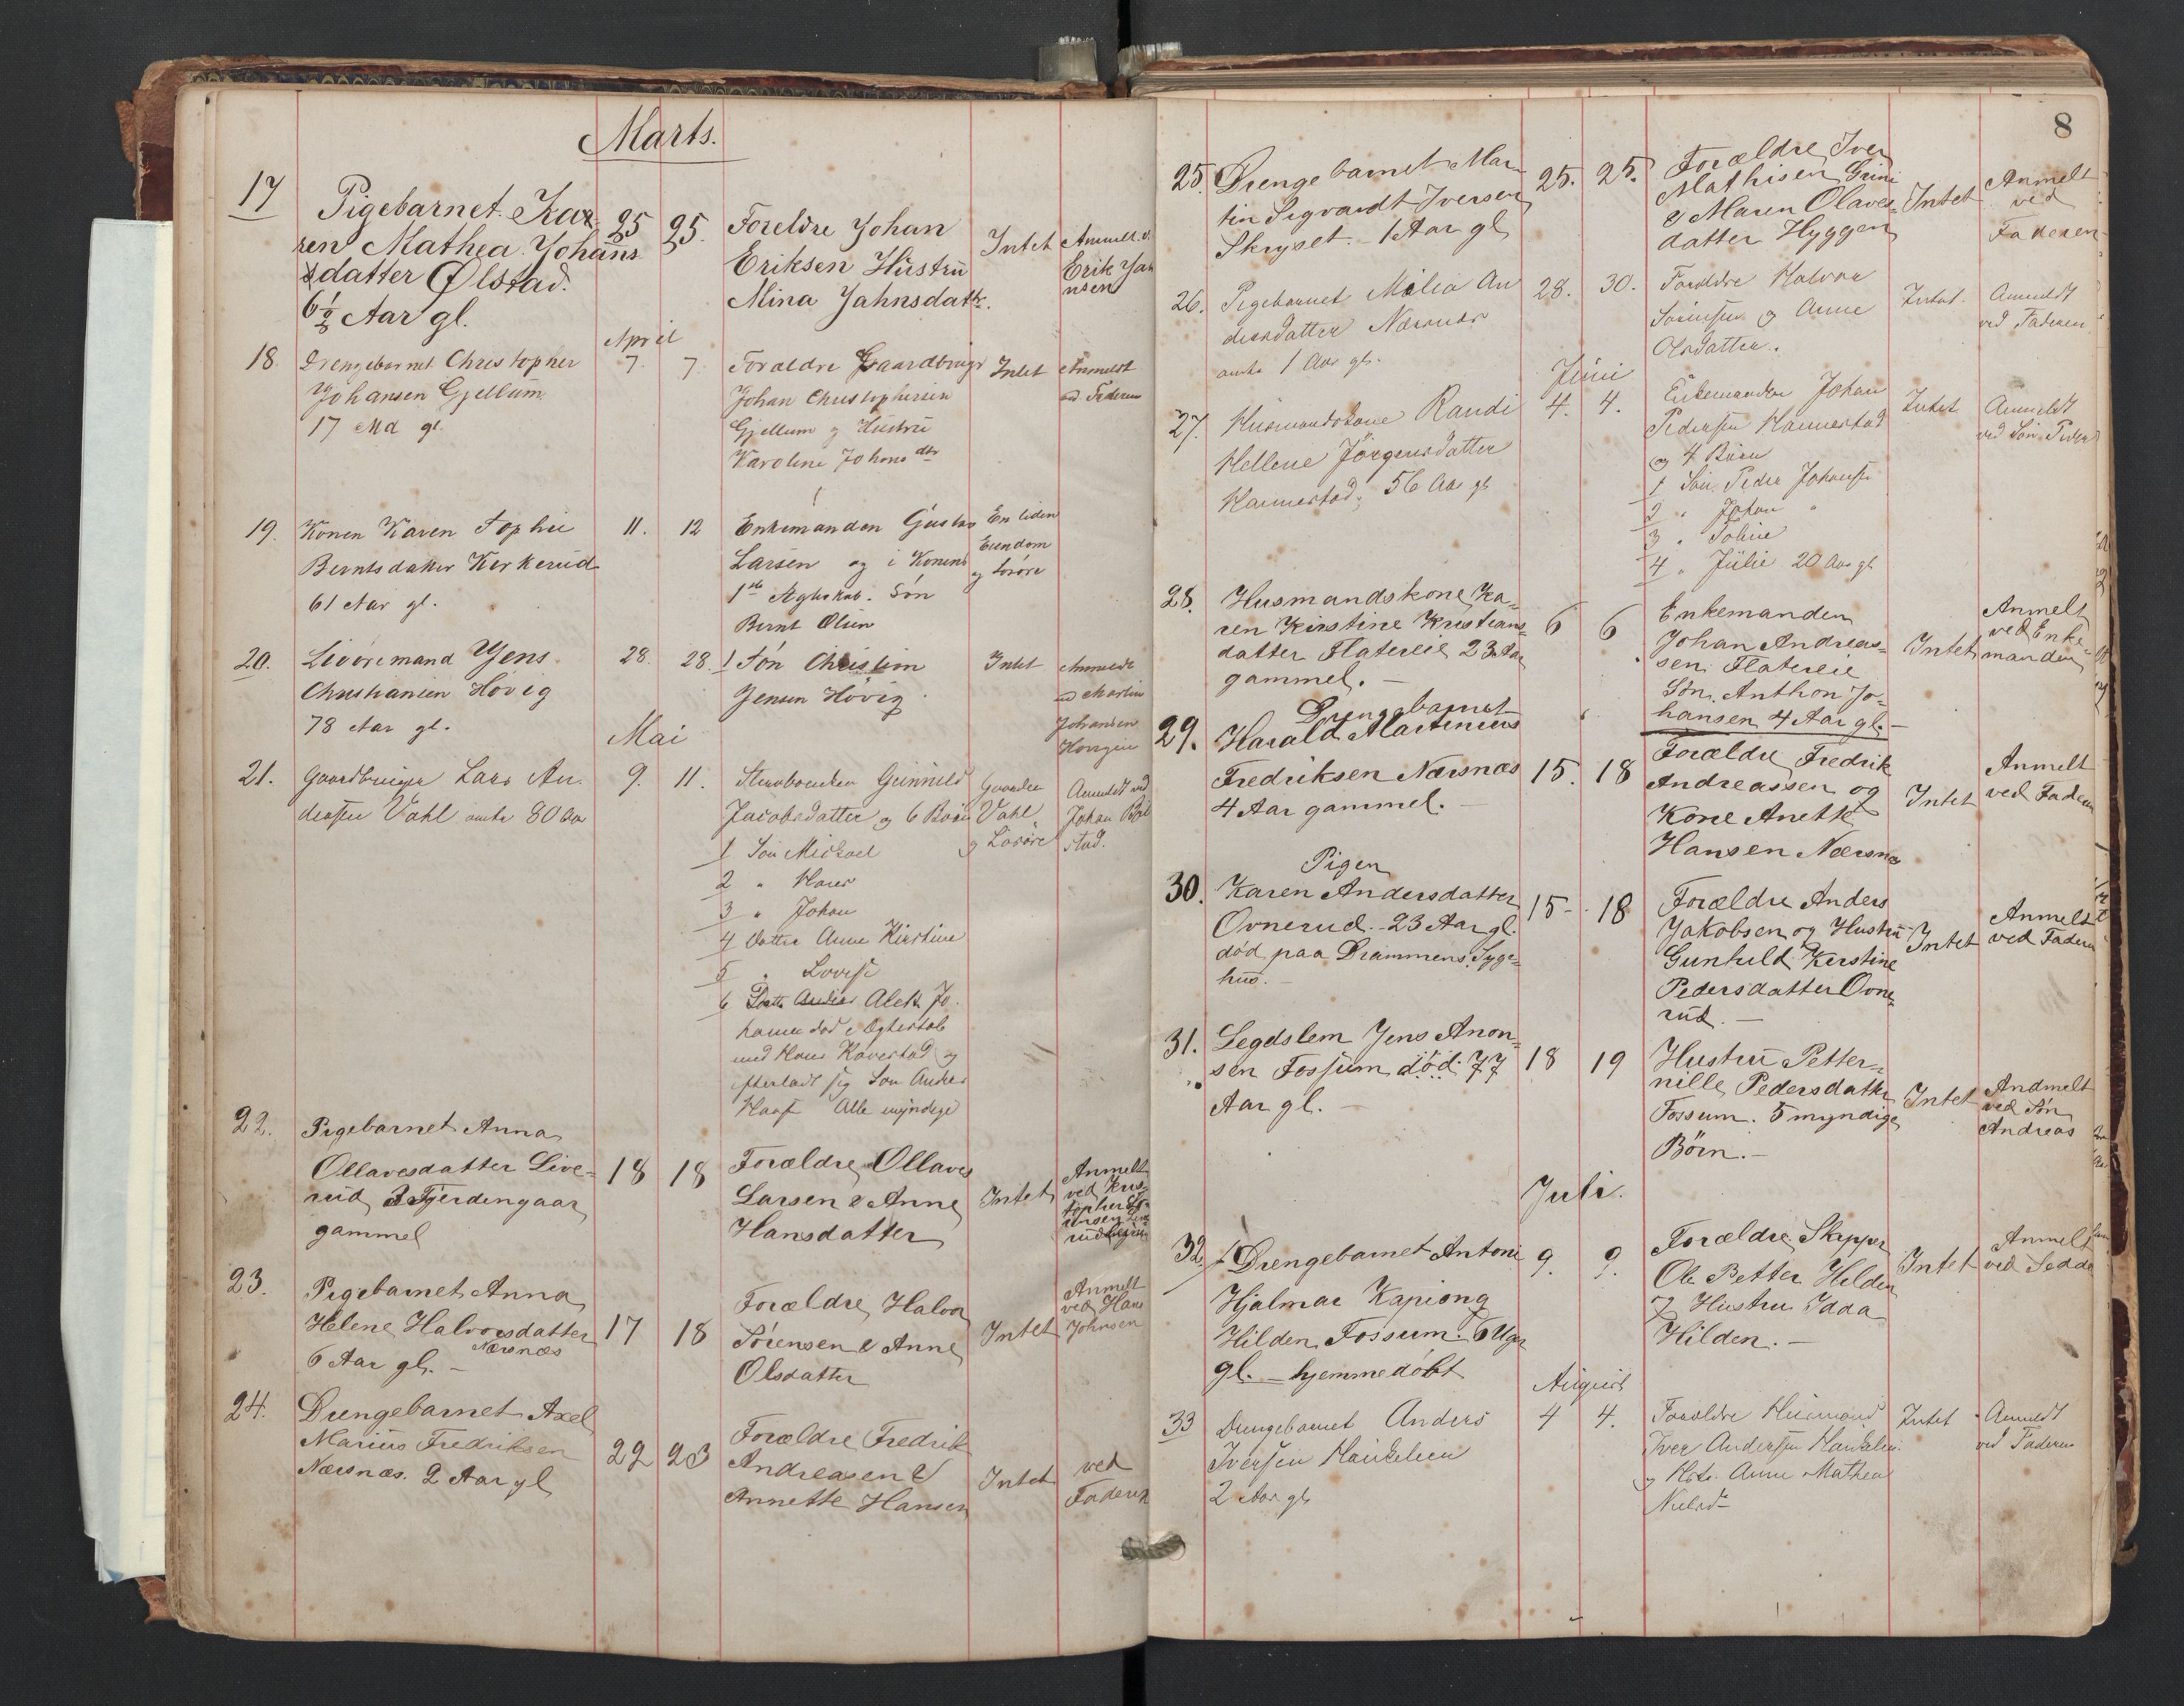 Marts.
17
Pigebarnet Ka-
ren Mathea Johans
datter Ølstad.
6 1/2 Aar gl.
25
25.
Foreldre Johan
Eriksen Hustru
Mina Jahnsdatt.
Intet
Anmeldt v.
Erik Jah
nsen
April
18.
Drengebarnet Christopher
Johansen Gjellum
17 Md gl.
7.
7.
Foraldre Gaardbruger
Johan Christophersen
Gjellum og Hustru
Karoline Johansdtr
Intet
Anmeldt
ved Faderen
19.
Konen Karen Sophie
Berntsdatter Kerkerud
61 Aar gl.
11.
12
Enkemanden Gustav
Larsen og i Konens
1ste Ægteskab. Søn
Bernt Olsen
En liden
Eiendom
og Løsøre
20.
Livøremand Jens
Christiansen Høvig
78 Aar gl.
28.
28.
1 Søn Christian
Jensen Høvig
Intet
Anmeldt
ved Martin
Johansen
Mai
21.
Gaardbruger Lars An-
dersen Vahl omtr 80 Aar
9.
11.
Gunnild
Jacobsdatter og 6 Børn
1 Søn Michael
2 " Hans
3 " Johan
4 Datter Anne Kirstine
5 " Lovise
6 Datter Alet Jo-
hanne død i Ægteskab
med Hans Kovestad og
efterladt sig Søn Anders
Alle myndige
Gaarden
Vahl
og Løsøre
Anmeldt ved
Johan Bøl
stad.
22.
Pigebarnet Anna
Ollavesdatter Live-
rud 3 Fjerdingaar
gammel
18
18
Forældre Ollaves
Larsen & Anne
Hansdatter
Intet
Anmelt
ved Kris-
topher
23.
Pigebarnet Anna
Helene Halvorsdatter
Nærsnæs
6 Aar gl. -
17
18
Forældre Halvor
Sörensen & Anne
Olsdatter
Intet
Anmelt
ved Hans
Johnsen
24.
Drengebarnet Axel
Marius Fredriksen
Nærsnæs. 2 Aar gl
22
23
Forældre Fredrik
Andreasen &
Annette Hansen
Intet
ved
Faderen
8
25.
Drengebarnet Mar-
tin Sigvardt Iversen
Skryset. - 1 Aar gl
25.
25.
Forældre Iver
Mathisen Grini
& Maren Olaves-
datter Hyggen
Intet
Anmelt
ved
Faderen
26.
Pigebarnet Milia An
dersdatter Nærsnæs
omtr 1 Aar gl.
28.
30.
Forældre Halvor
Sörensen og Anne
Olsdatter.
Intet.
Anmeldt
ved Faderen
Juni
27.
Husmandskone Randi
Hellene Jörgensdatter
Hannestad, 56 Aar gl
4.
4.
Enkemanden Johan
Pedersen Hannestad
og 4 Børn
1 Søn Peder Johansen
2 " Johan "
3 " Sofie
4 " Julie 20 Aar gl
Intet
Anmeldt
ved Søn Peder
28.
Husmandskone Ka-
ren Kirstine Kristians-
datter Flatereie 23 Aar
gammel. -
6
6
Enkemanden
Johan Andreas-
sen Flatereie
Søn. Anthon Jo-
hansen 4 Aar gl. -
Intet
Anmelt
ved Enke-
manden
29.
Drengebarnet
Harald Martinius
Fredriksen Nærsnæs
4 Aar gammel. -
15.
18
Forældre Fredrik
Andreassen og
Kone Anette
Hansen Nærsnæs
Intet
Anmelt
ved Faderen
30.
Pigen
Karen Andersdatter
Ovnerud. - 23 Aar gl.
død paa Drammens Syge-
hus. -
15 -
18
Forældre Anders
Jakobsen og Hustru
Gunhild Kerstine
Pedersdatter Ovne-
rud. -
Intet
Anmelt
ved Faderen
31.
Legdslem Jens Anon-
sen Fossum död 77
Aar gl. -
18
19
Hustru Petter-
nille Pedersdatter
Fossum. 5 myndige
Börn. -
Intet
Andmelt
ved Søn
Andreas
Juli.
32
Drengebarnet Antoni
Hjalmar Kapiong
Hilden Fossum. 6 Uger
gl. - hjemmedöbt
9.
9.
Forældre Skipper
Ole Petter Hilden
og Hustru Idda
Hilden. -
Intet
Anmelt
ved Sedde
August
33
Drengebarnet Anders
Iversen Haukelien
2 Aar gl
4
4.
Foreldre Husmand
Iver Andersen Haukelien
og Hstr. Anne Mathea
Intet
Anmeldt
ved Faderen